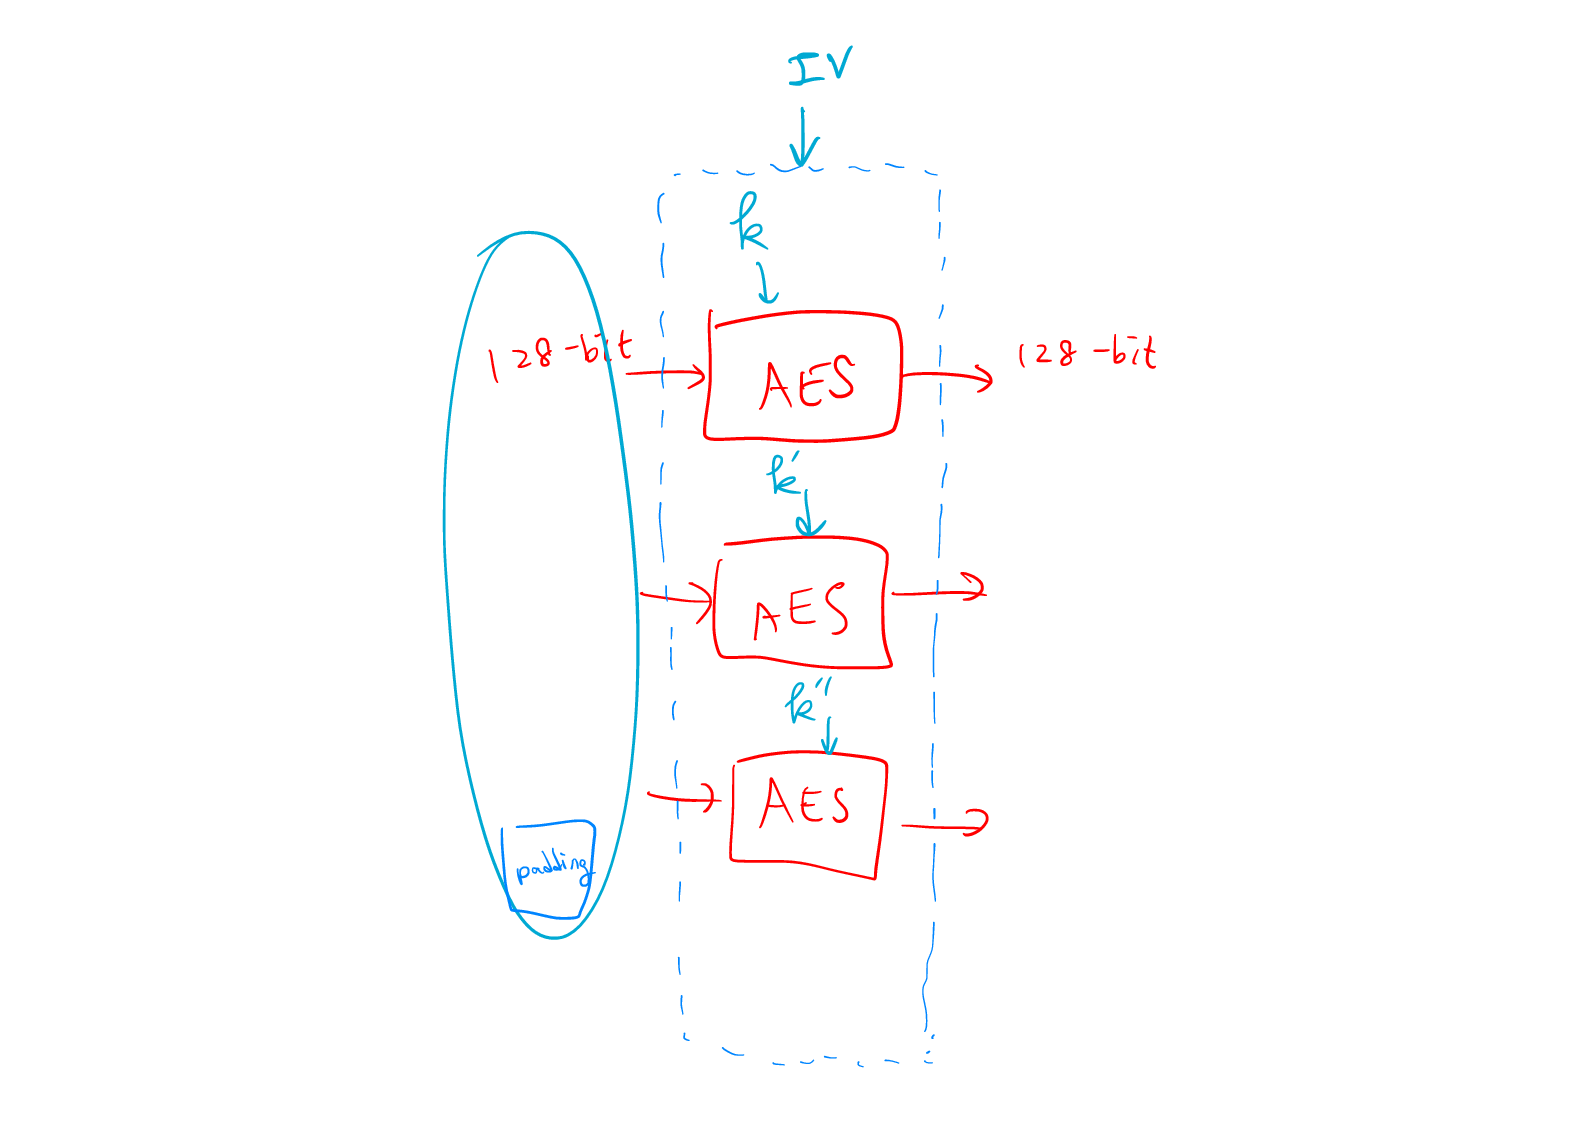 IV
k
128-bit
AES
128-bit
k'
AES
k''
AES
padding